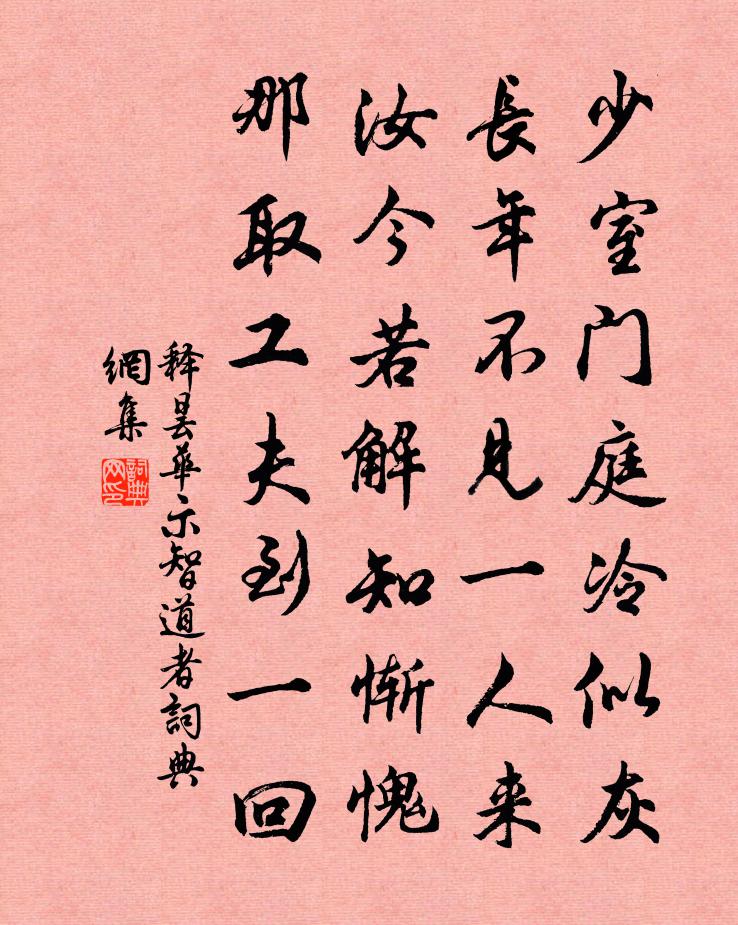 少室门庭冷似灰
長年不見一人来
汝今若解知惭愧
那取工夫到一回
释昙華示智道者詞典
網集
詞典網印